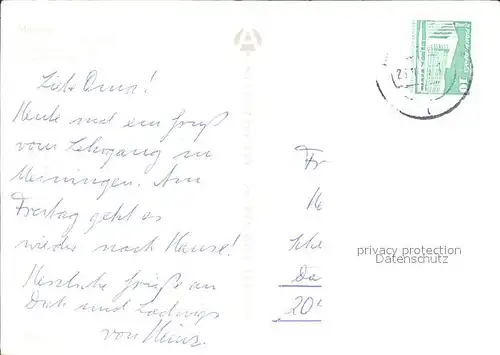 Liebe Oma!
Heute mal ein Gruß
vom Lehrgang in
Meiningen. Am
Freitag geht es
wieder nach Hause!
Herzliche Grüße an
Dich und Ludwigs
von Heinz.
Fr
He
Sche
Da
20
10
privacy protection
Datenschutz